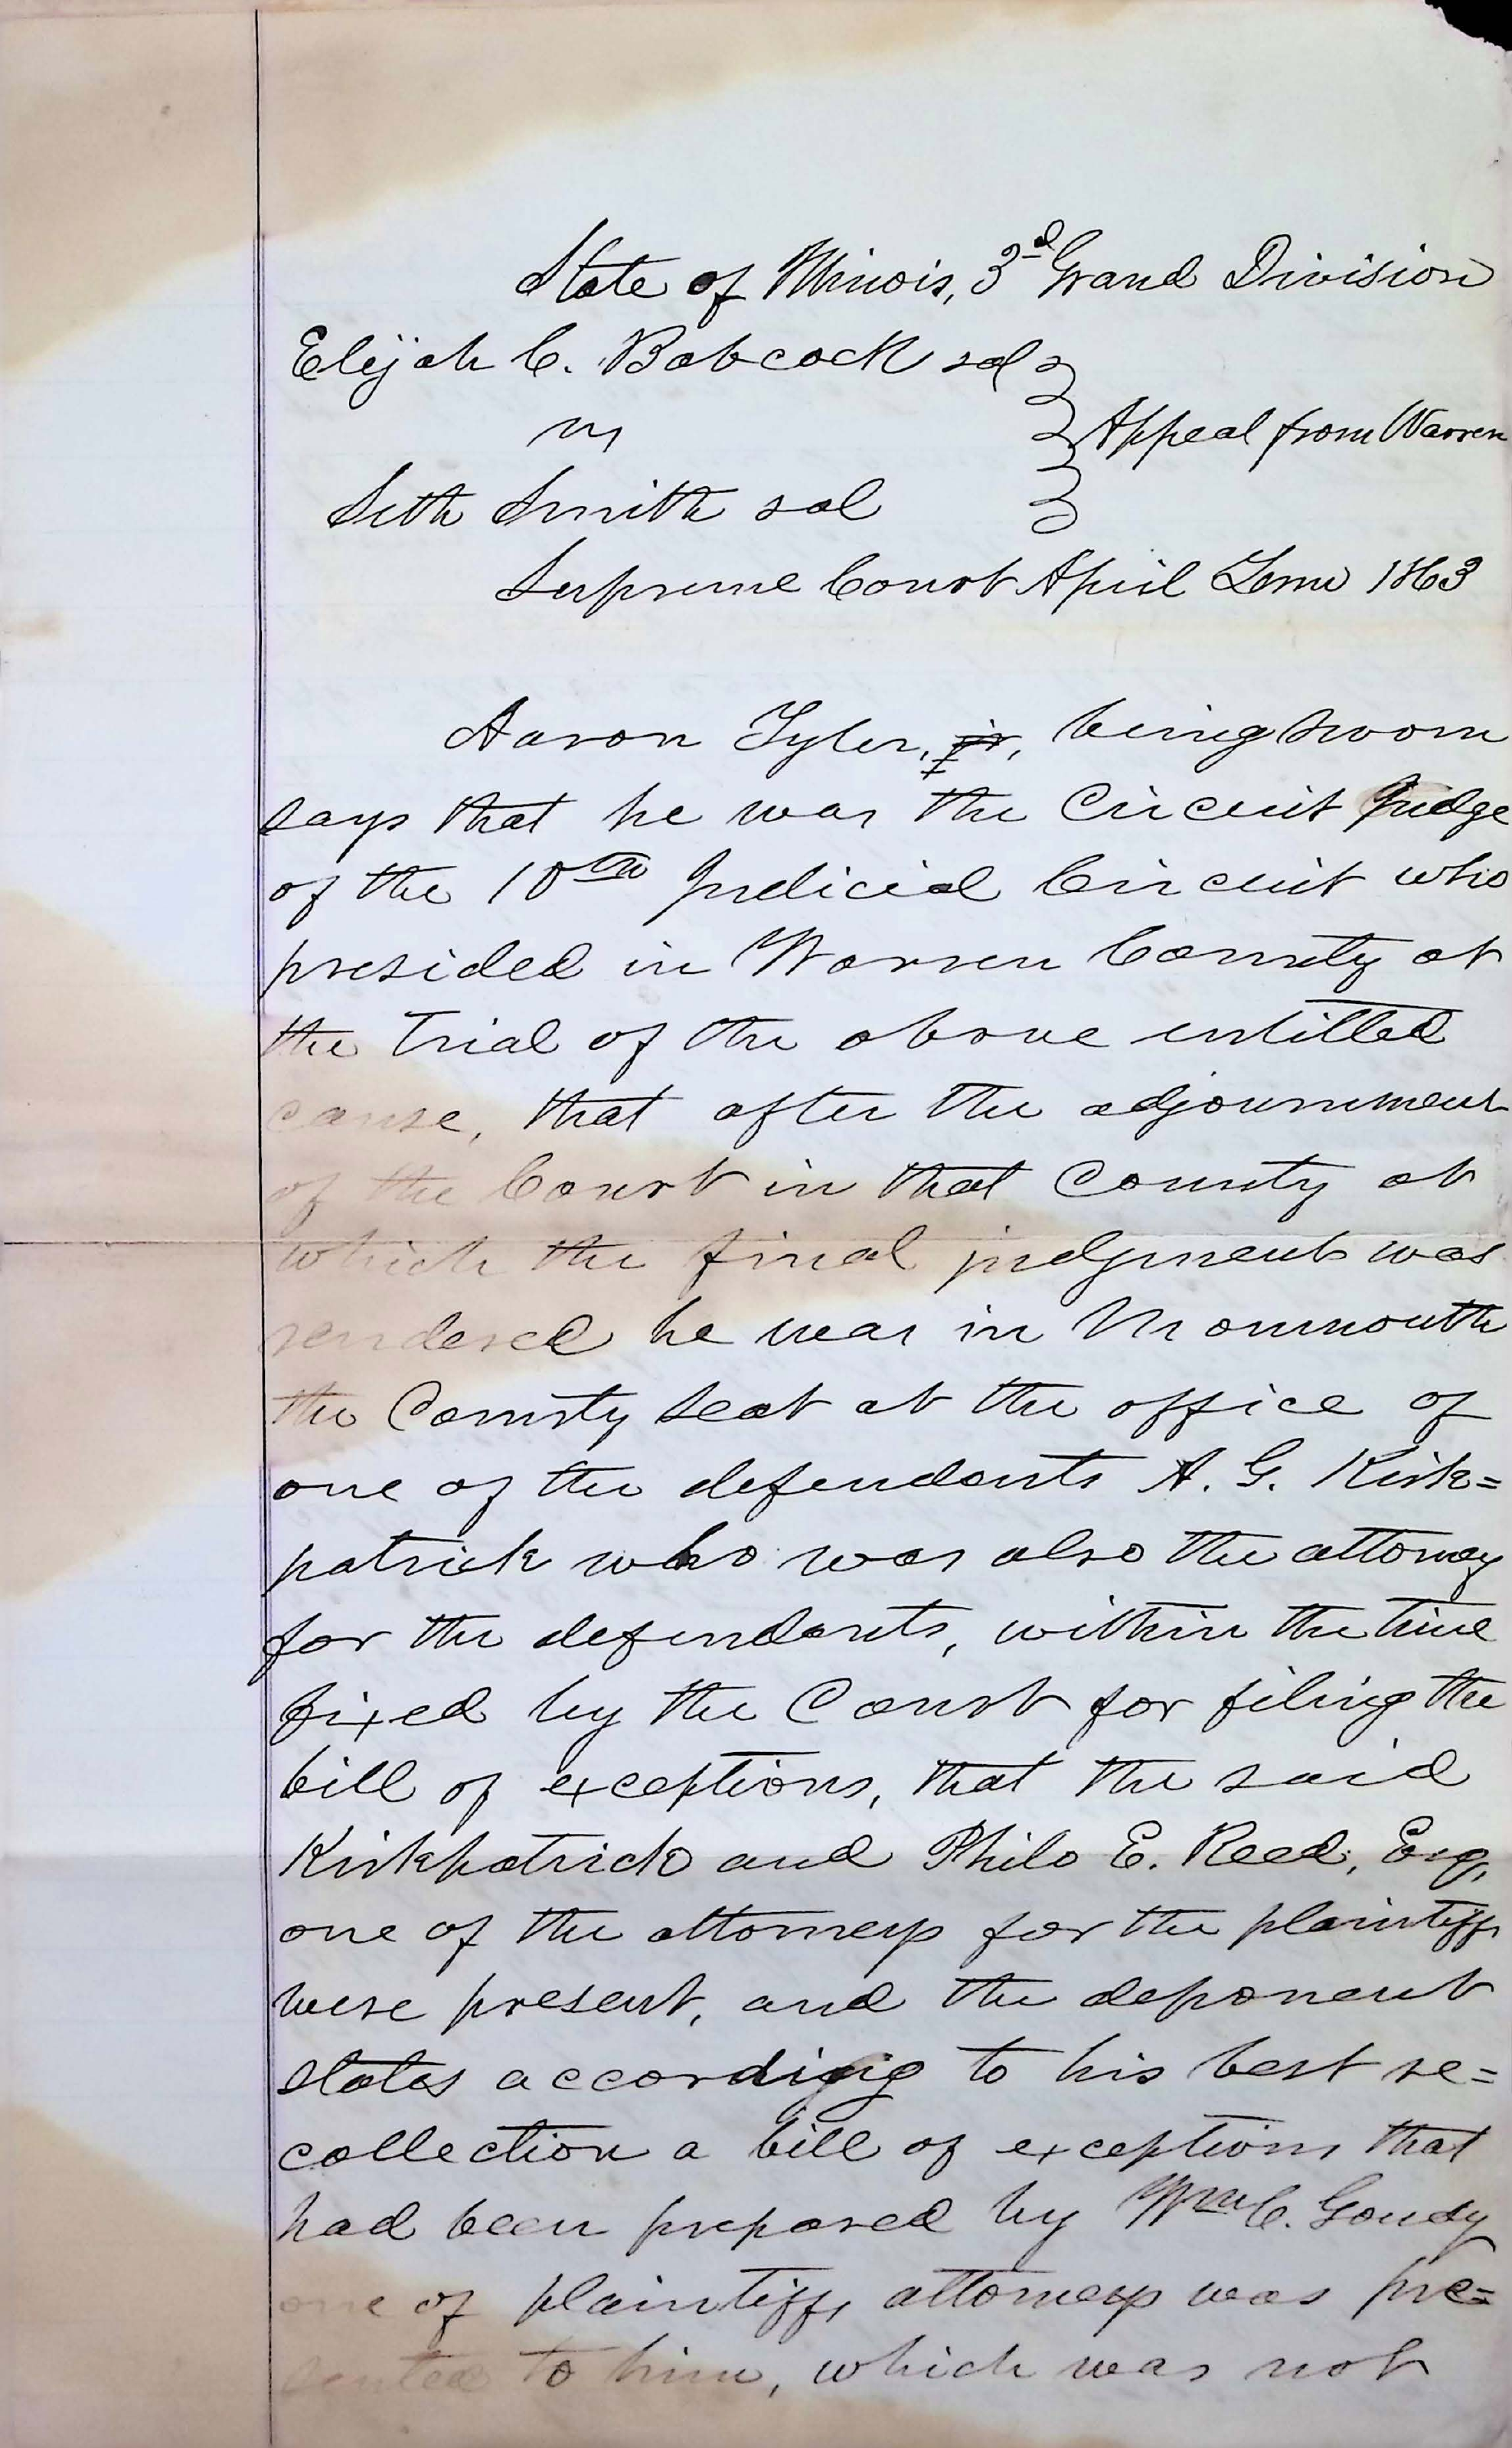 State of Illinois, 3d Grand Division
Elijah C. Babcock et al
vs
Appeal from Warren
Seth Smith et al
Supreme Court April Term 1863
Aaron Tyler, jr, being sworn
says that he was the Circuit Judge
of the 10th Judicial Circuit who
presided in Warren County at
the trial of the above entitled
cause, that after the adjournment
of the Court in that County at
which the final judgment was
rendered he was in Monmouth
the County seat at the office of
one of the defendants A. G. Kirk=
patrick who was also the attorney
for the defendants, within the time
fixed by the Court for filing the
bill of exceptions, that the said
Kirkpatrick and Philo E. Reed, Esq,
one of the attorneys for the plaintiffs
were present, and the deponent
states according to his best re=
collection a bill of exceptions that
had been prepared by Wm C. Goudy
one of plaintiffs attorneys was pre=
sented to him, which was not